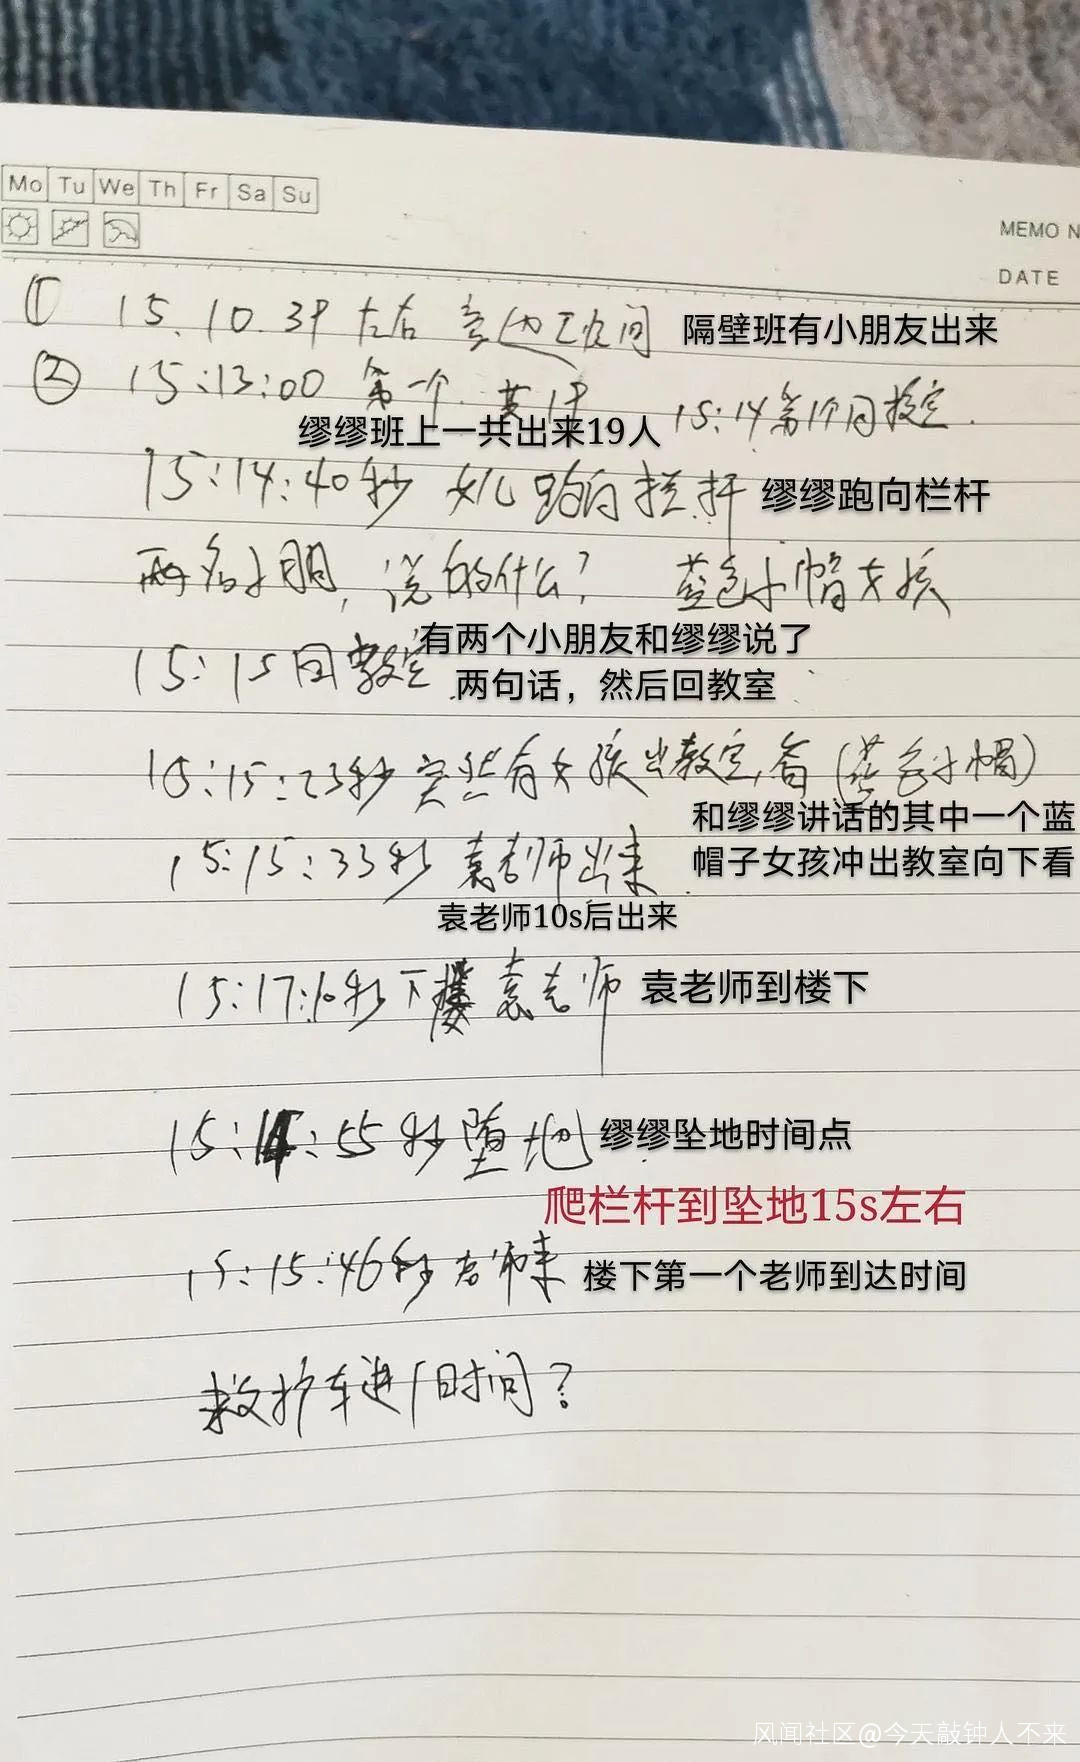 Mo Tu We Th Fr Sa Su
MEMO N
DATE
① 15.10.39 左右 旁边 间 隔壁班有小朋友出来
② 15:13:00 第一个 共19 15:14 第19个回教室.
缪缪班上一共出来19人
15:14:40秒 女儿跑向栏杆 缪缪跑向栏杆
两名小朋, 说的什么? 蓝色小帽女孩
有两个小朋友和缪缪说了
15:15回教室 两句话，然后回教室
15:15:23秒 突然有女孩出教室看(蓝色小帽)
和缪缪讲话的其中一个蓝
15:15:33秒 袁老师出来 帽子女孩冲出教室向下看
袁老师10s后出来
15:17:10秒下楼 袁老师 袁老师到楼下
15:14:55秒堕地 缪缪坠地时间点
爬栏杆到坠地15s左右
15:15:46秒老师来 楼下第一个老师到达时间
救护车进 时间?
风闻社区@今天敲钟人不来